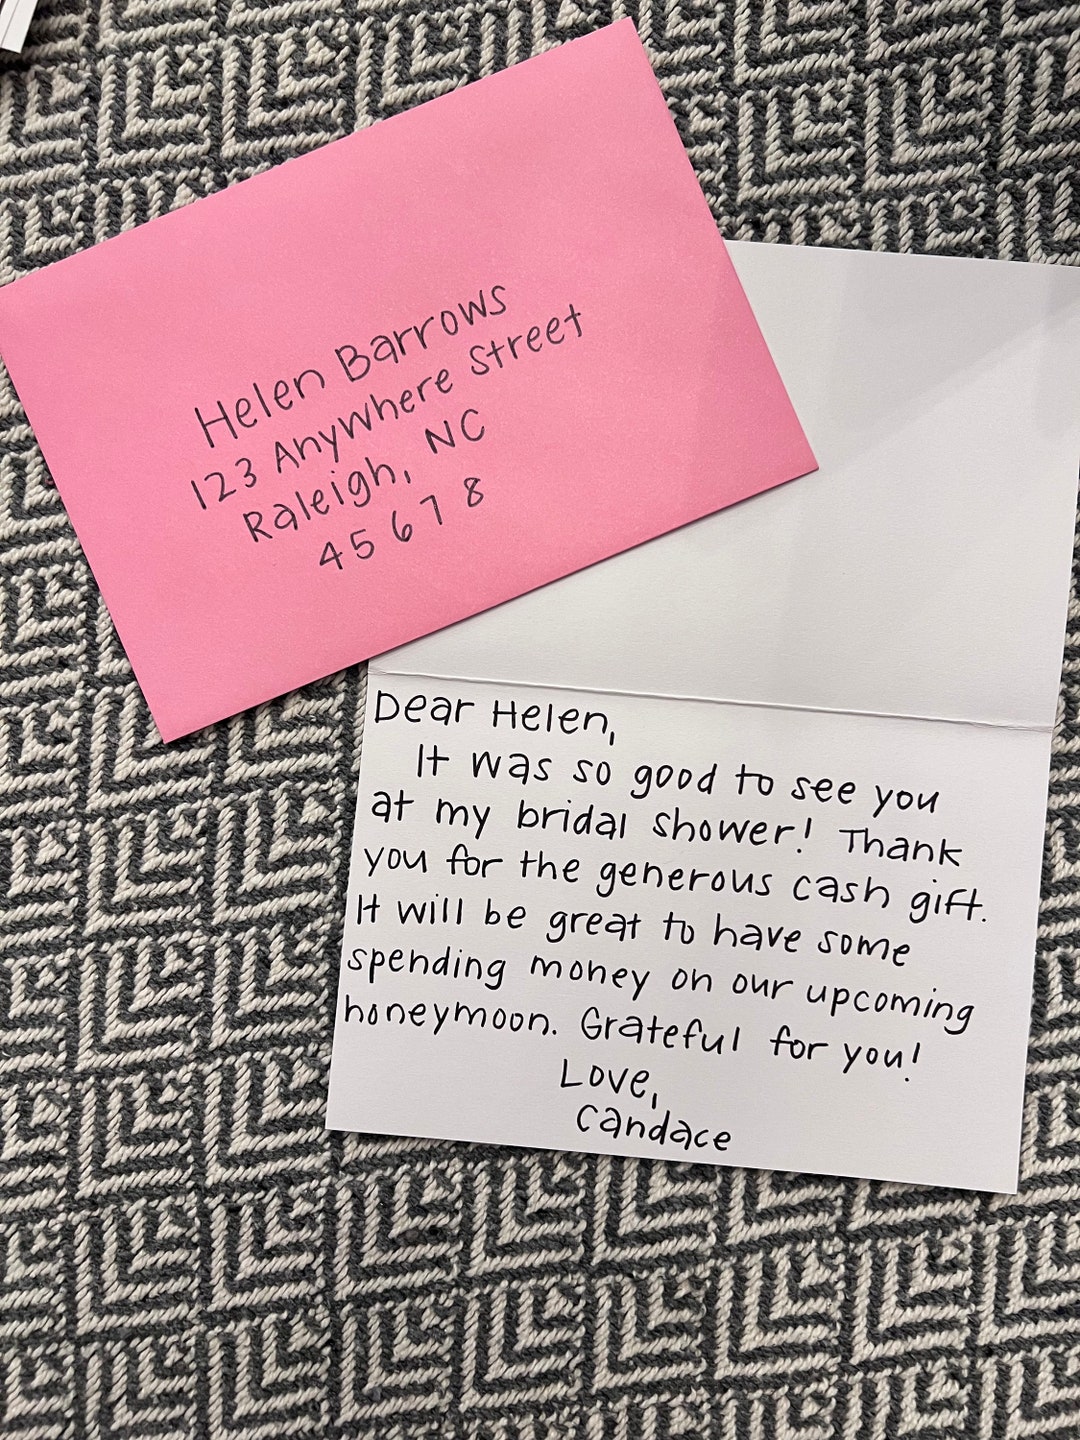 Helen Barrows
123 Anywhere Street
Raleigh, NC
45678
Dear Helen,
It was so good to see you
at my bridal shower! Thank
you for the generous cash gift.
It will be great to have some
spending money on our upcoming
honeymoon. Grateful for you!
Love,
Candace